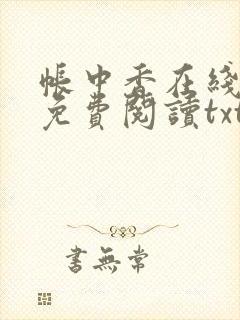 帳中香在綫
免費閱讀txt
書無常